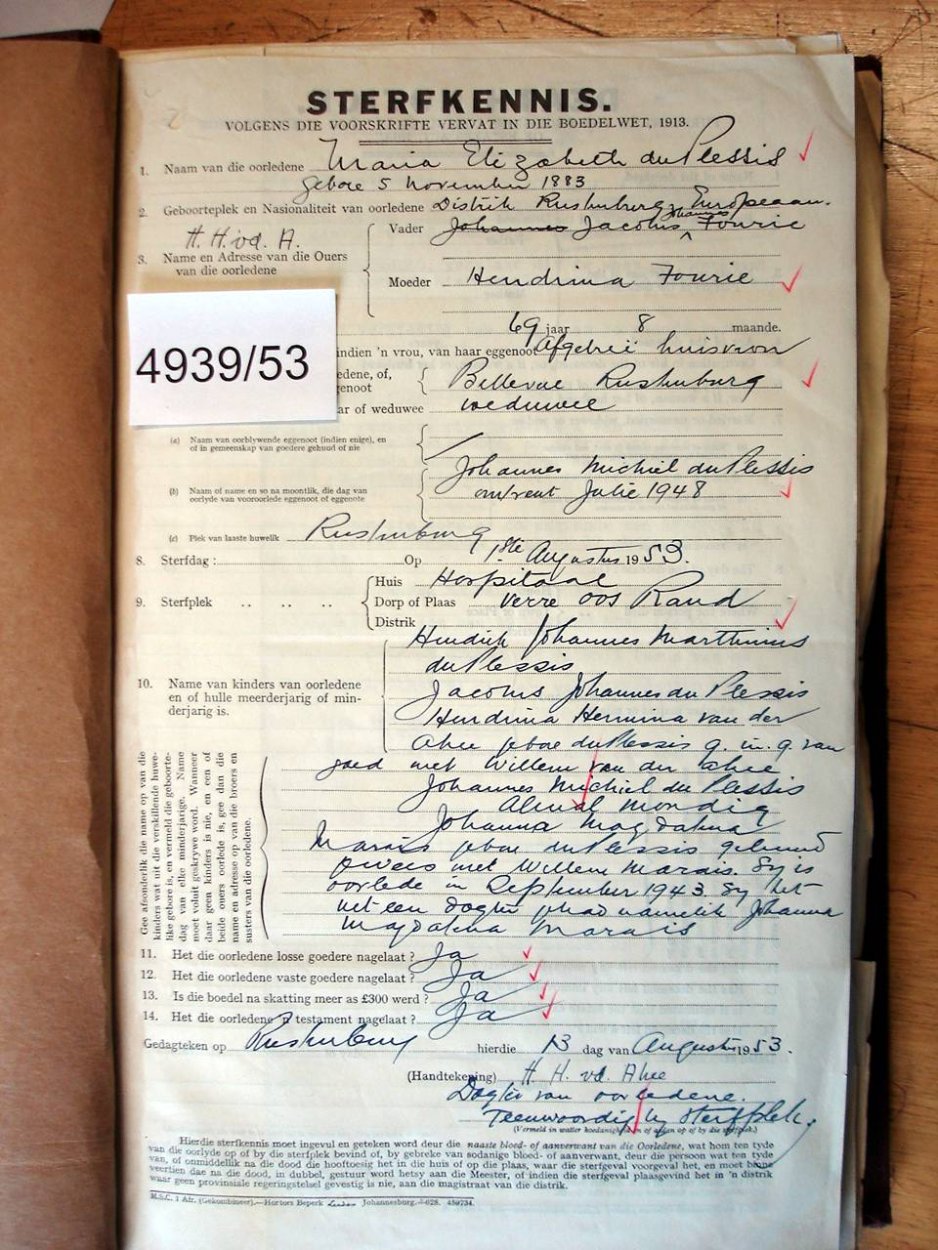 STERFKENNIS.
VOLGENS DIE VOORSKRIFTE VERVAT IN DIE BOEDELWET, 1913.
1. Naam van die oorledene Maria Elizabeth du Plessis
gebore 5 November 1883
2. Geboorteplek en Nasionaliteit van oorledene Distrik Rustenburg, Europeaan.
H. H. vd. A.
3. Name en Adresse van die Ouers van die oorledene
Vader Johannes Jacobus Johannes Fourie
Moeder Hendrina Fourie
69 jaar 8 maande.
4939/53
indien 'n vrou, van haar eggenoot Afgeleë huisvrou
edene, of, genoot Bellevue Rustenburg
ar of weduwee weduwee
(a) Naam van oorblywende eggenoot (indien enige), en of in gemeenskap van goedere gehuud of nie
(b) Naam of name en so na moontlik, die dag van oorlyde van vooroorlede eggenoot of eggenote
Johannes Michiel du Plessis
omtrent Julie 1948
(c) Plek van laaste huwelik Rustenburg
8. Sterfdag : Op 1ste Augustus 1953.
9. Sterfplek .. .. ..
Huis Hospitaal
Dorp of Plaas Verre Oos Rand
Distrik
10. Name van kinders van oorledene en of hulle meerderjarig of minderjarig is.
Hendrik Johannes Marthinus
du Plessis
Jacobus Johannes du Plessis
Hendrina Hermina van der
Ahee gebore du Plessis g. in. g. van
goed met Willem van der Ahee
Johannes Michiel du Plessis
Almal Mondig
Johanna Magdalena
Marais gebore du Plessis gehuud
gewees met Willem Marais. Sy is
oorlede in September 1943 Sy het
net een dogter gehad namelik Johanna
Magdalena Marais
Gee afsonderlik die name op van die kinders wat uit die verskillende huwelike gebore is, en vermeld die geboortedag van elke minderjarige. Name moet voluit geskrywe word. Wanneer daar geen kinders is nie, en een of beide ouers oorlede is, gee dan die name en adresse op van die broers en susters van die oorledene.
11. Het die oorledene losse goedere nagelaat ? Ja
12. Het die oorledene vaste goedere nagelaat ? Ja
13. Is die boedel na skatting meer as £300 werd ? Ja
14. Het die oorledene 'n testament nagelaat ? Ja
Gedagteken op Rustenburg hierdie 13 dag van Augustus 1953.
(Handtekening) H. H. vd. Ahee
Dogter van oorledene.
Teenwoordig by sterfplek.
(Vermeld in watter hoedanigheid en of aldan op of by die sterfplek.)
Hierdie sterfkennis moet ingevul en geteken word deur die naaste bloed- of aanverwant van die Oorledene, wat hom ten tyde
van die oorlyde op of by die sterfplek bevind of, by gebreke van sodanige bloed- of aanverwant, deur die persoon wat ten tyde
van, of onmiddellik na die dood die hooftoesig het in die huis of op die plaas, waar die sterfgeval voorgeval het, en moet binne
veertien dae na die dood, in dubbel, gestuur word hetsy aan die Meester, of indien die sterfgeval plaasgevind het in 'n distrik
waar geen provinsiale regeringstelsel gevestig is nie, aan die magistraat van die distrik.
M.S.C. 1 Afr. (Gekombineer).—Hortors Beperk Johannesburg.